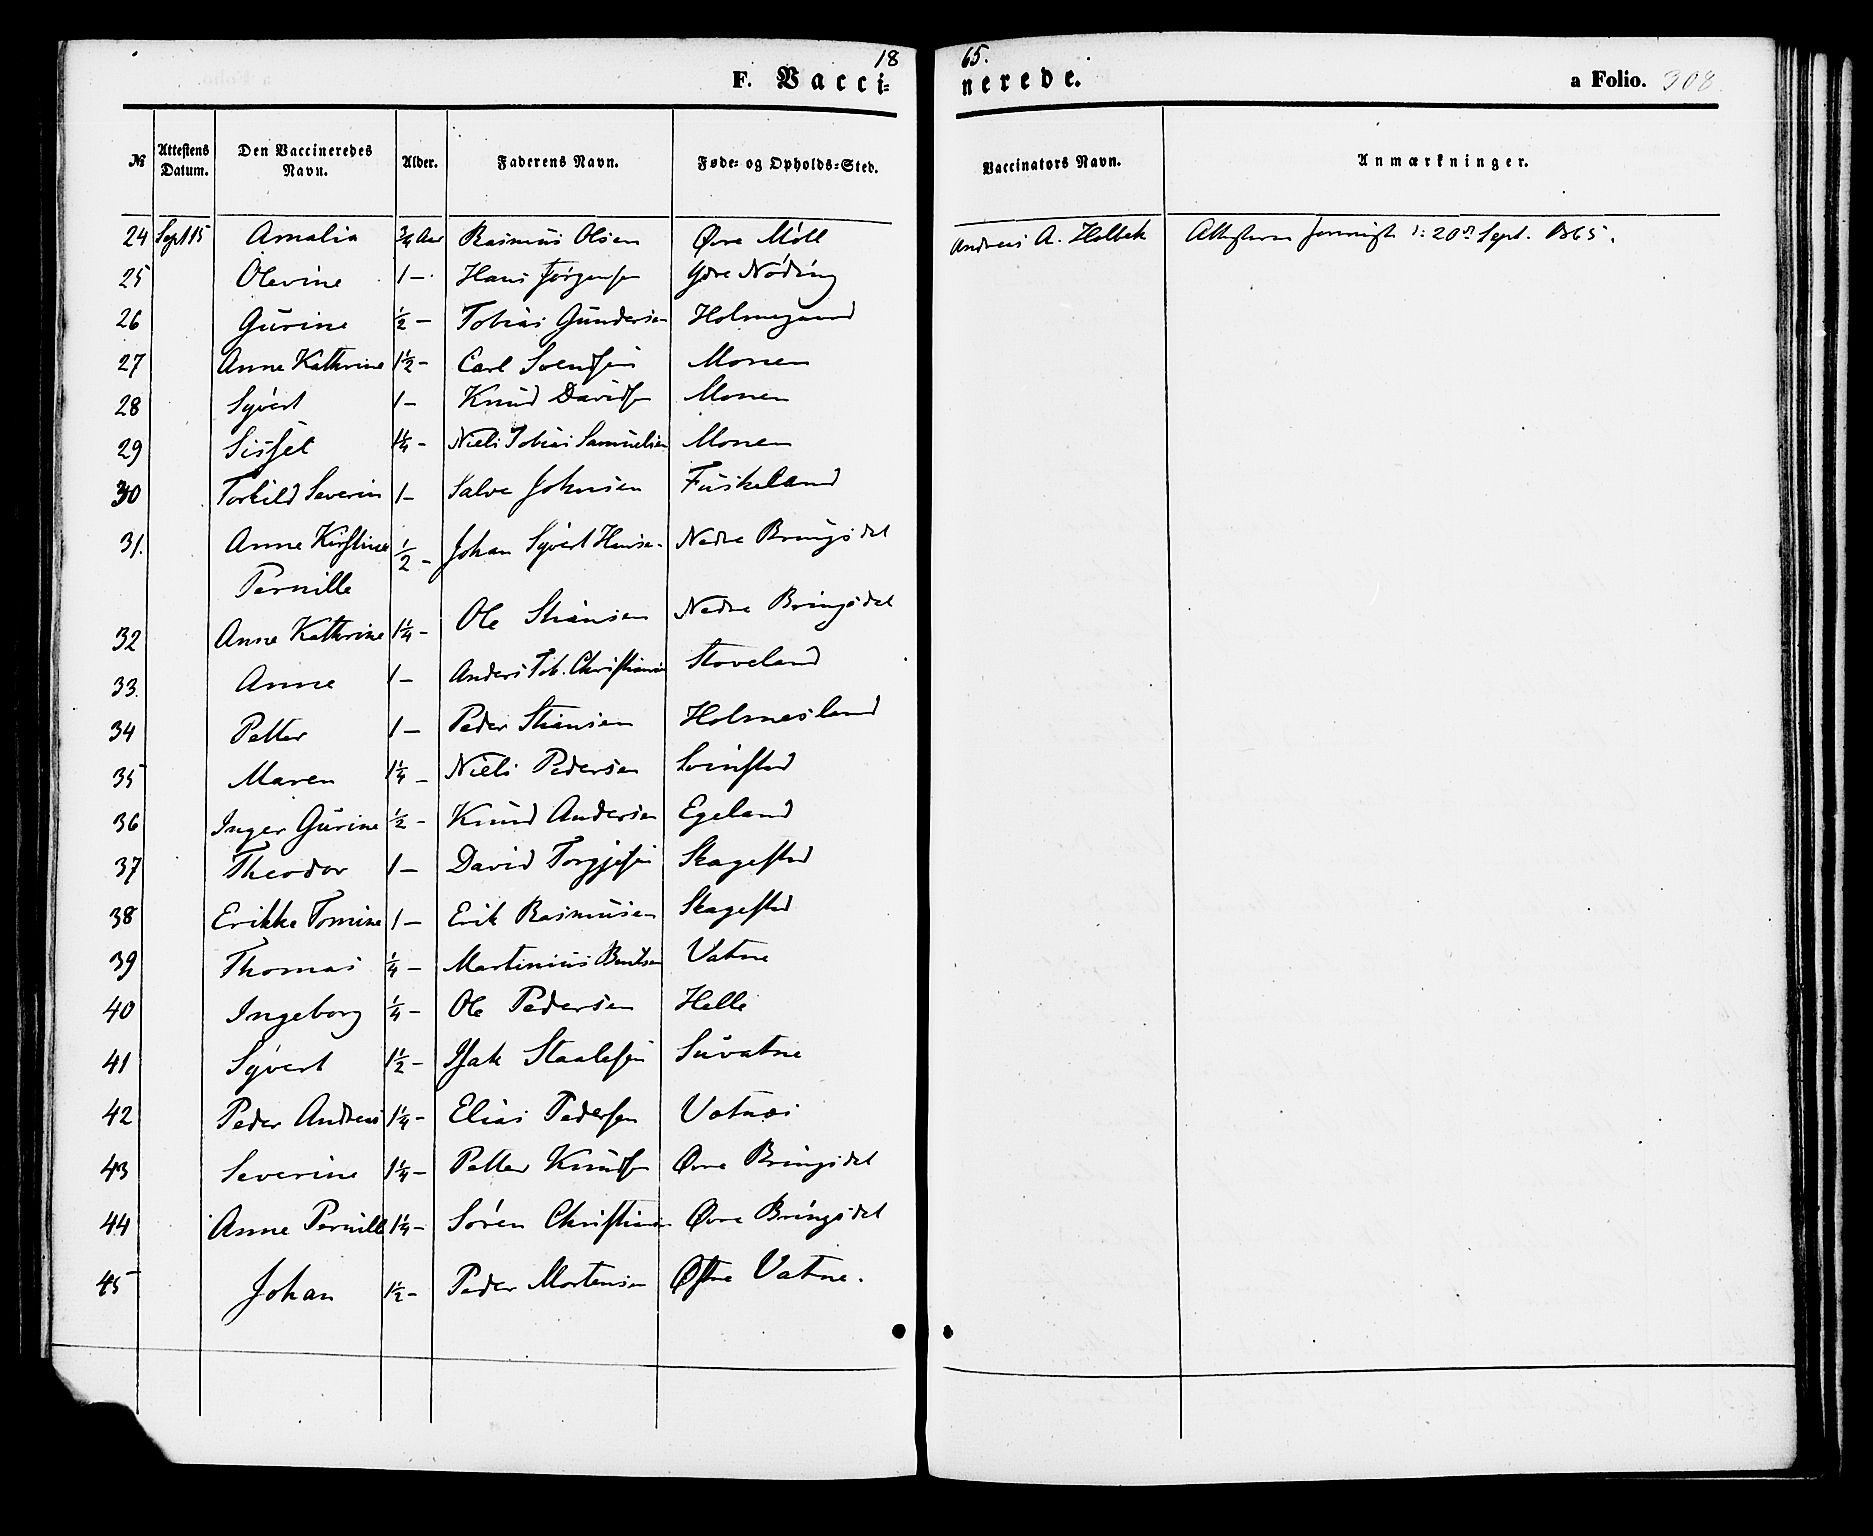 18 65.
F. Vacci- nerede. a Folio. 308
№ Attestens Datum. Den Vaccineredes Navn. Alder. Faderens Navn. Føde- og Opholds-Sted. Vaccinators Navn. Anmærkninger.
24 Sept 15 Amalia 3/4 Aar Rasmus Olsen Øvre Møll Andreas A. Holbek 20 Sept. 1865.
25 Olevine 1 - Hans Jørgensen Ydre Nøding
26 Gurine 1/2 - Tobias Gundersen Holmegaard
27 Anne Kathrine 1 1/2 - Carl Svendsen Monen
28 Syvert 1 - Knud Davidsen Monen
29 Sissel 1 1/4 - Niels Tobias Samuelsen Monen
30 Torkild Severin 1 - Salve Johnsen Fuskeland
31. Anne Kirstine 1/2 - Johan Syvert Hansen Nedre Bringsdal
Pernille
32 Anne Kathrine 1 1/4 - Ole Stiansen Nedre Bringsdal
33. Anne 1 - Anders Tob. Christiansen Stoveland
34 Petter 1 - Peder Stiansen Holmesland
35 Maren 1 1/4 - Niels Pedersen Svinstad
36 Inger Gurine 1/2 - Knud Andersen Egeland
37 Theodor 1 - David Torgjesen Skagestad
38 Erikke Tomine 1 - Erik Rasmusen Skagestad
39 Thomas 1/4 - Martinius Bentsen Vatne
40 Ingeborg 1/4 - Ole Pedersen Helle
41 Syvert 1 1/2 - Isak Staalesen Suvatne
42 Peder Andreas 1 1/4 - Elias Pedersen Vatnas
43 Severine 1 1/4 - Petter Knudsen Øvre Bringsdal
44 Anne Pernille 1 1/4 - Søren Christiansen Øvre Bringsdal
45 Johan 1 1/2 - Peder Mortensen Østre Vatne.